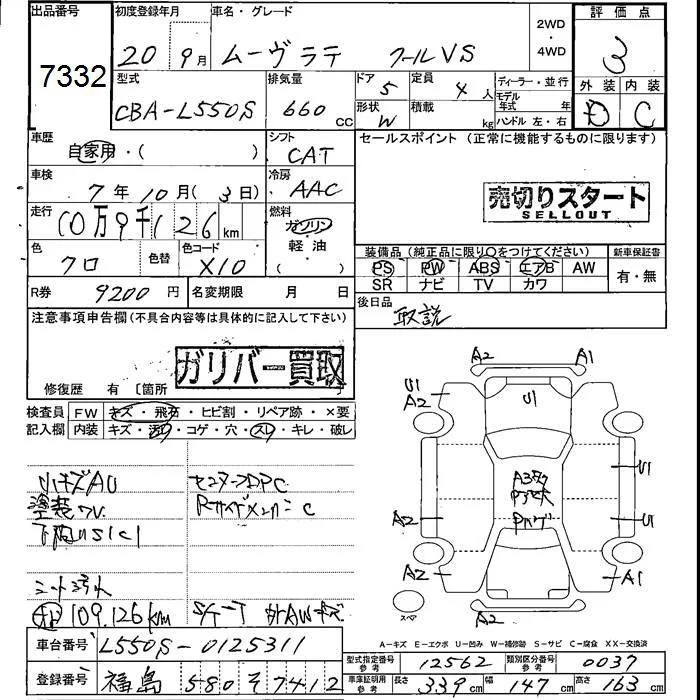 出品番号 7332
初度登録年月 20 9月
車名・グレード ムーヴラテ クールVS
2WD・4WD
評価点 3
外装 D 内装 C
型式 CBA-L550S
排気量 660 CC
ドア 5 形状 W
定員 4人 積載 kg
ディーラー・並行
モデル年式 年
ハンドル 左・右
車歴 自家用・( )
シフト CAT
車検 7年10月(3日)
冷房 AAC
走行 10万9千126km
燃料 ガソリン 軽油 ( )
色 クロ 色替 色コード X10
R券 9200円 名変期限 月 日
セールスポイント (正常に機能するものに限ります)
売切りスタート
SELLOUT
装備品(純正品に限り○をつけてください) 新車保証書
PS PW ABS エアB AW 有・無
SR ナビ TV カワ
後日品 取説
注意事項申告欄(不具合内容等は具体的に記入して下さい)
ガリバー買取
修復歴 有 〔箇所
検査員 FW キズ・飛石・ヒビ割・リペア跡・×要
記入欄 内装 キズ・汚れ・コゲ・穴・スレ・キレ・破レ
小キズAU
塗装
シート汚れ
109,126km
A2 A1
U1 A2 U1
A2 U1 U1
A2 A1
A2
スペア
A-キズ E-エクボ U-凹み W-補修跡 S-サビ C-腐食 XX-交換済
車台番号 L550S-0125311
登録番号 福島 580 そ 7412
型式指定番号 参考 12562 類別区分番号 参考 0037
車庫証明用 参考 長さ 339cm 幅 147cm 高さ 163cm